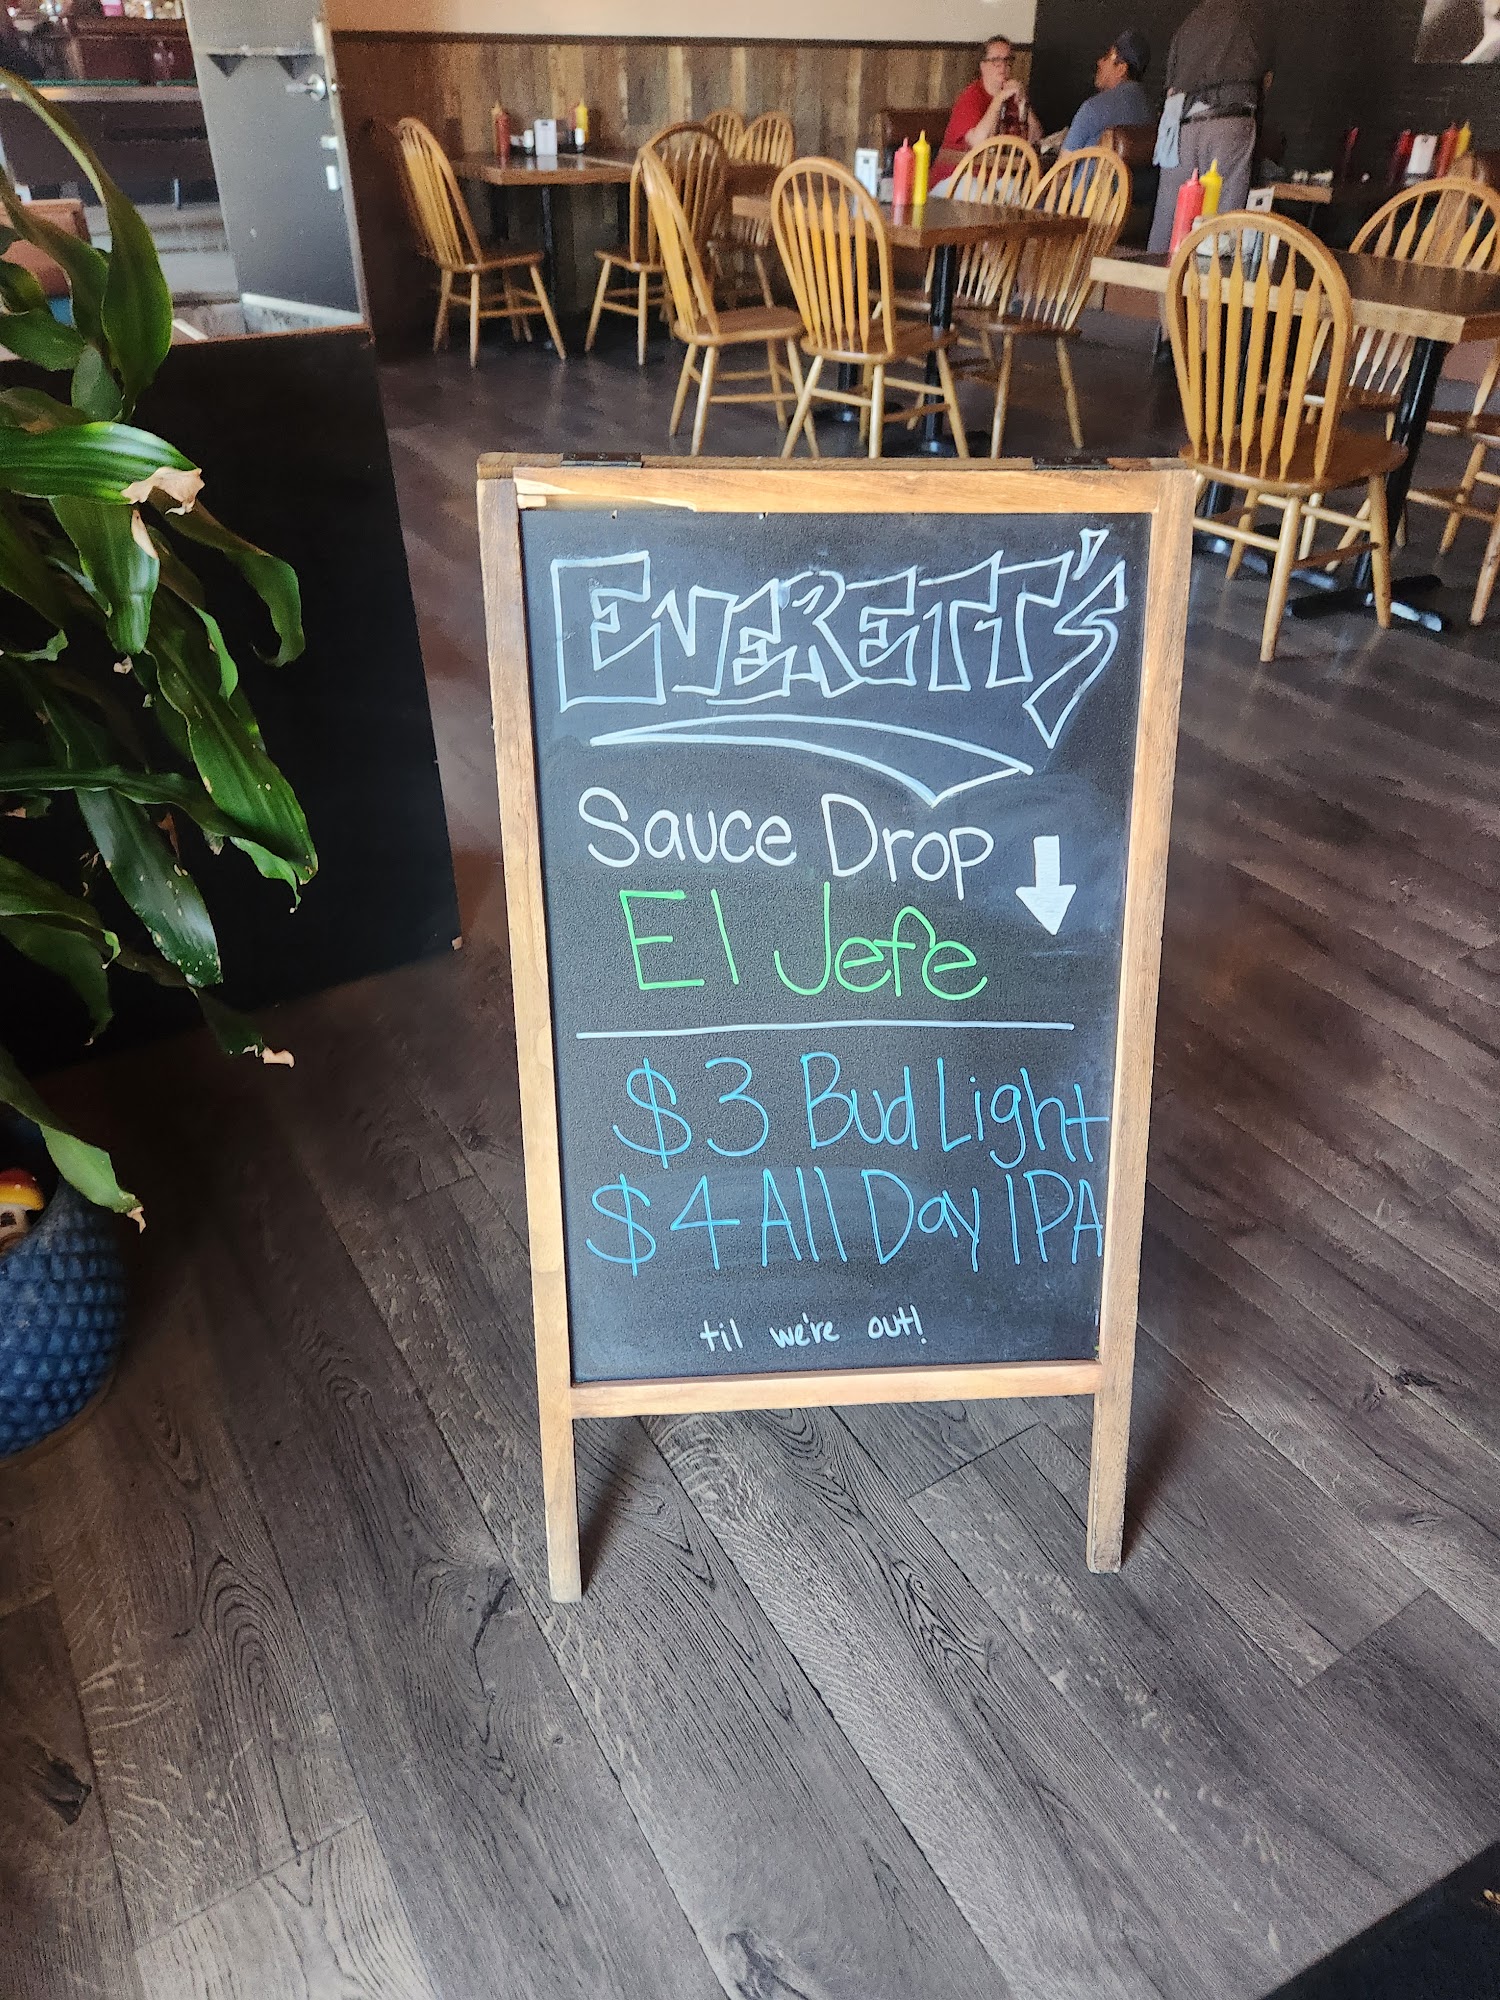 EVERETT'S
Sauce Drop
El Jefe
$3 Bud Light
$4 All Day IPA
til we're out!